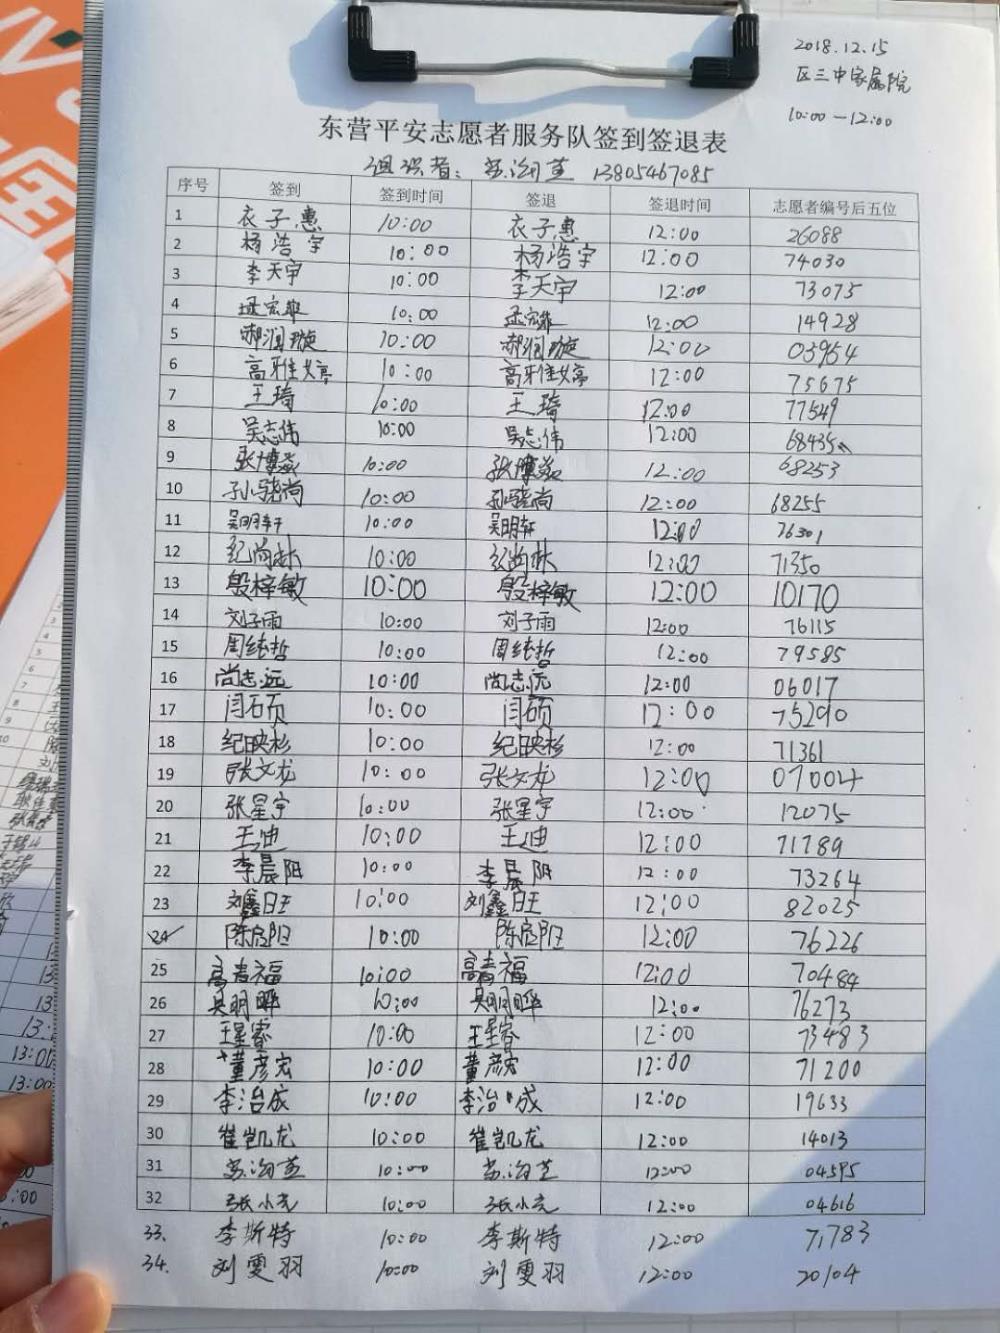 2018.12.15
区三中家属院
10:00—12:00
东营平安志愿者服务队签到签退表
组织者： 13805467085
序号 签到 签到时间 签退 签退时间 志愿者编号后五位
1 衣子惠 10:00 衣子惠 12:00 26088
2 杨浩宇 10:00 杨浩宇 12:00 74030
3 李天宇 10:00 李天宇 12:00 73075
4 10:00 12:00 14928
5 郝润璇 10:00 郝润璇 12:00 03954
6 高雅婷 10:00 高雅婷 12:00 75675
7 王琦 10:00 王琦 12:00 77549
8 吴志伟 10:00 吴志伟 12:00 68435
9 张博焱 10:00 张博焱 12:00 68253
10 孙骁尚 10:00 孙骁尚 12:00 68255
11 吴明轩 10:00 吴明轩 12:00 76301
12 纪尚赫 10:00 纪尚赫 12:00 71350
13 殷梓敏 10:00 殷梓敏 12:00 10170
14 刘子雨 10:00 刘子雨 12:00 76115
15 周纯哲 10:00 周纯哲 12:00 79585
16 尚志远 10:00 尚志远 12:00 06017
17 闫硕 10:00 闫硕 12:00 75290
18 纪映杉 10:00 纪映杉 12:00 71361
19 张文龙 10:00 张文龙 12:00 07004
20 张星宇 10:00 张星宇 12:00 12075
21 王迪 10:00 王迪 12:00 71789
22 李晨阳 10:00 李晨阳 12:00 73264
23 刘鑫旺 10:00 刘鑫旺 12:00 82025
24 10:00 12:00 76226
25 高青福 10:00 高青福 12:00 70484
26 吴明晔 10:00 吴明晔 12:00 76273
27 王星睿 10:00 王星睿 12:00 73483
28 董彦宏 10:00 董彦宏 12:00 71200
29 李治成 10:00 李治成 12:00 19633
30 崔凯龙 10:00 崔凯龙 12:00 14013
31 10:00 12:00 04595
32 张小亮 10:00 张小亮 12:00 04616
33. 李斯特 10:00 李斯特 12:00 71783
34. 刘雯羽 10:00 刘雯羽 12:00 20104
13:00
13:00